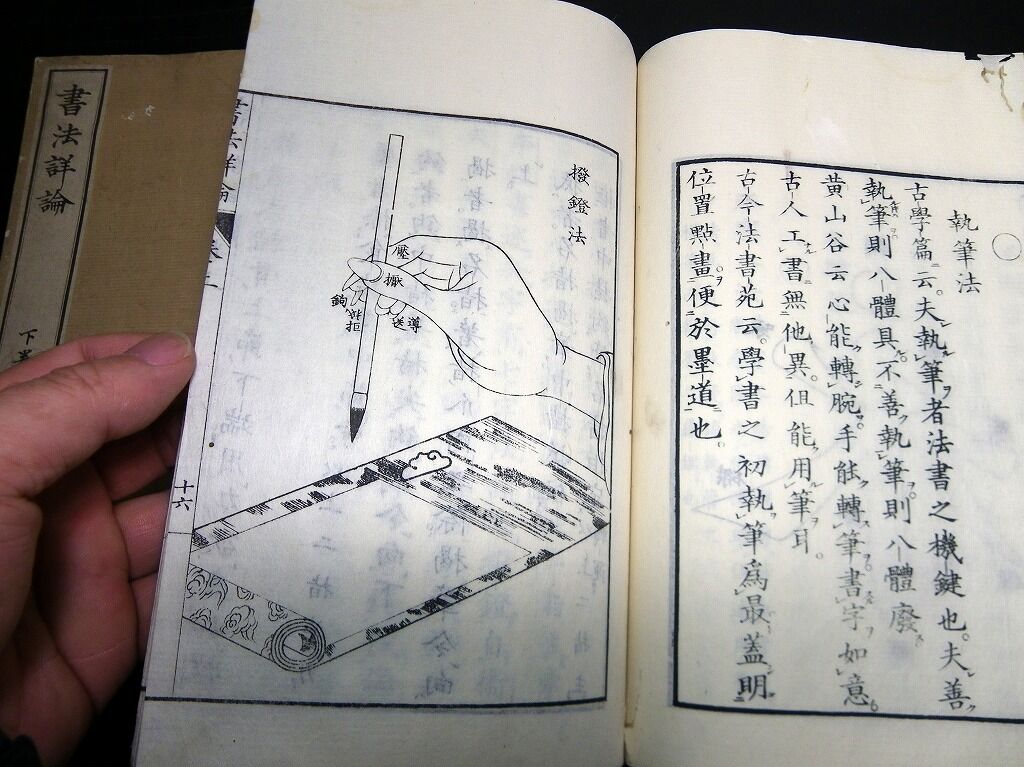 執筆法
古學篇云。夫執筆者法書之機鍵也。夫善
執筆則八體具。不善執筆則八體廢。
黃山谷云心能轉腕。手能轉筆書字如意。
古人工書無他異。但能用筆耳。
古今法書苑云。學書之初執筆爲最蓋明
位置點畫便於墨道也。
撥鐙法
壓
擫
鉤
拒
導
送
書法詳論
十六
書法詳論
下